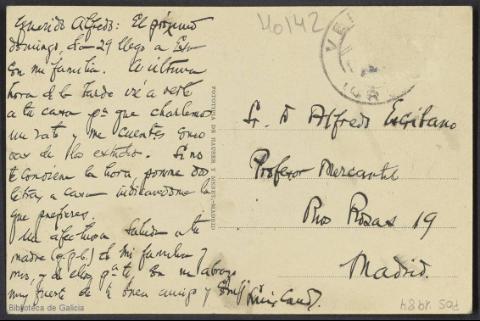 Querido Alfredo: El próximo
domingo, día 29 llego a
con mi familia. A última
hora de la tarde iré a verte
a tu casa pª que charlemos
un rato y me cuentes
cosas de tus estudios. Si no
te conviene la hora, ponme dos
letras a casa indicándome la
que prefieres.
Un afectuoso saludo a tu
madre (q.p.b.) de mi familia y
mío, y de ellos pª ti, con un abrazo
muy fuerte de tu buen amigo y
40/42
Sr. D Alfredo Escribano
Profesor Mercantil
Rios Rosas 19
Madrid.
FOTOTIPIA DE HAUSER Y MENET.-MADRID
POS 1984
Biblioteca de Galicia